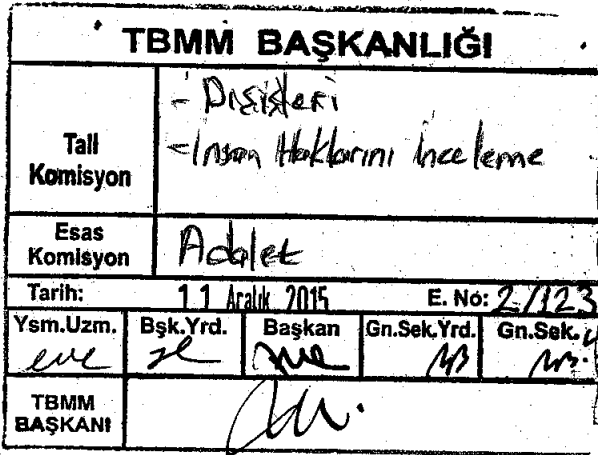 TBMM BAŞKANLIĞI
Tali Komisyon
- Dışişleri
- İnsan Haklarını İnceleme
Esas Komisyon
Adalet
Tarih: 11 Aralık 2015 E. No: 2/123
Ysm.Uzm. Bşk.Yrd. Başkan Gn.Sek.Yrd. Gn.Sek.
TBMM BAŞKANI